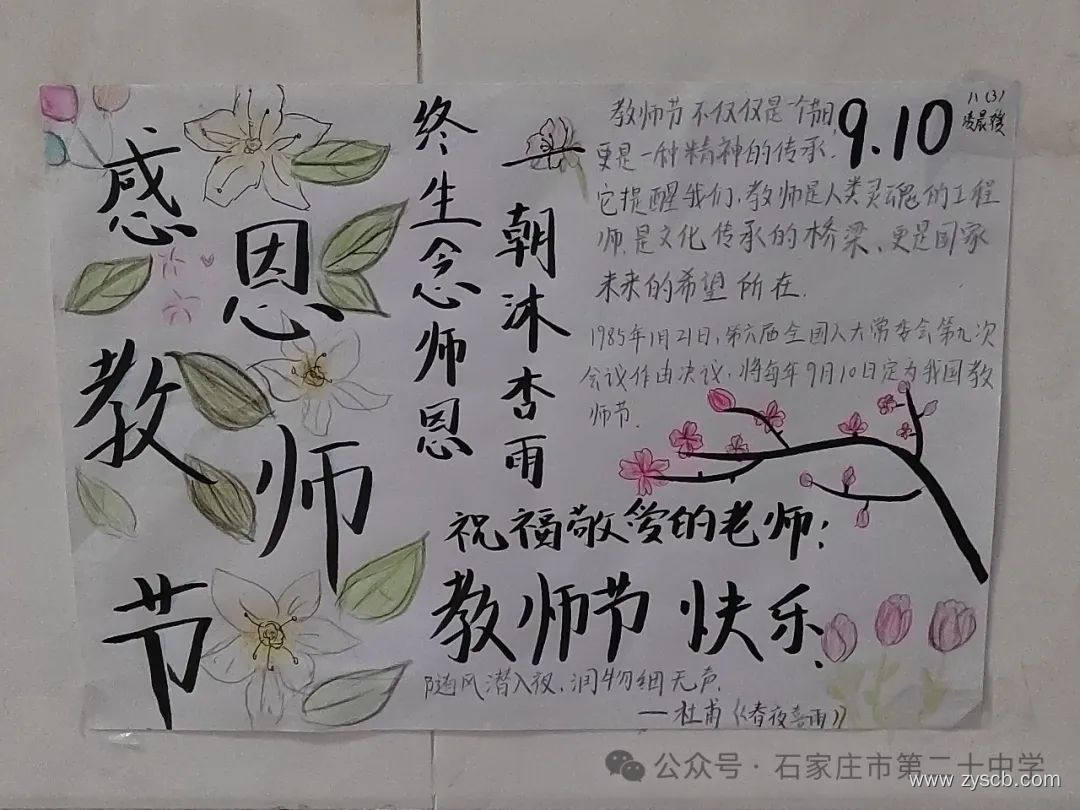 感恩教师节
一朝沐杏雨
终生念师恩
9.10
八(3)
教师节不仅仅是个节日,
更是一种精神的传承.
它提醒我们,教师是人类灵魂的工程
师,是文化传承的桥梁、更是国家
未来的希望所在.
1985年1月21日,第六届全国人大常委会第九次
会议作出决议,将每年9月10日定为我国教
师节.
祝福敬爱的老师:
教师节快乐.
随风潜入夜,润物细无声.
——杜甫《春夜喜雨》
公众号·石家庄市第二十中学
www.zyscb.com